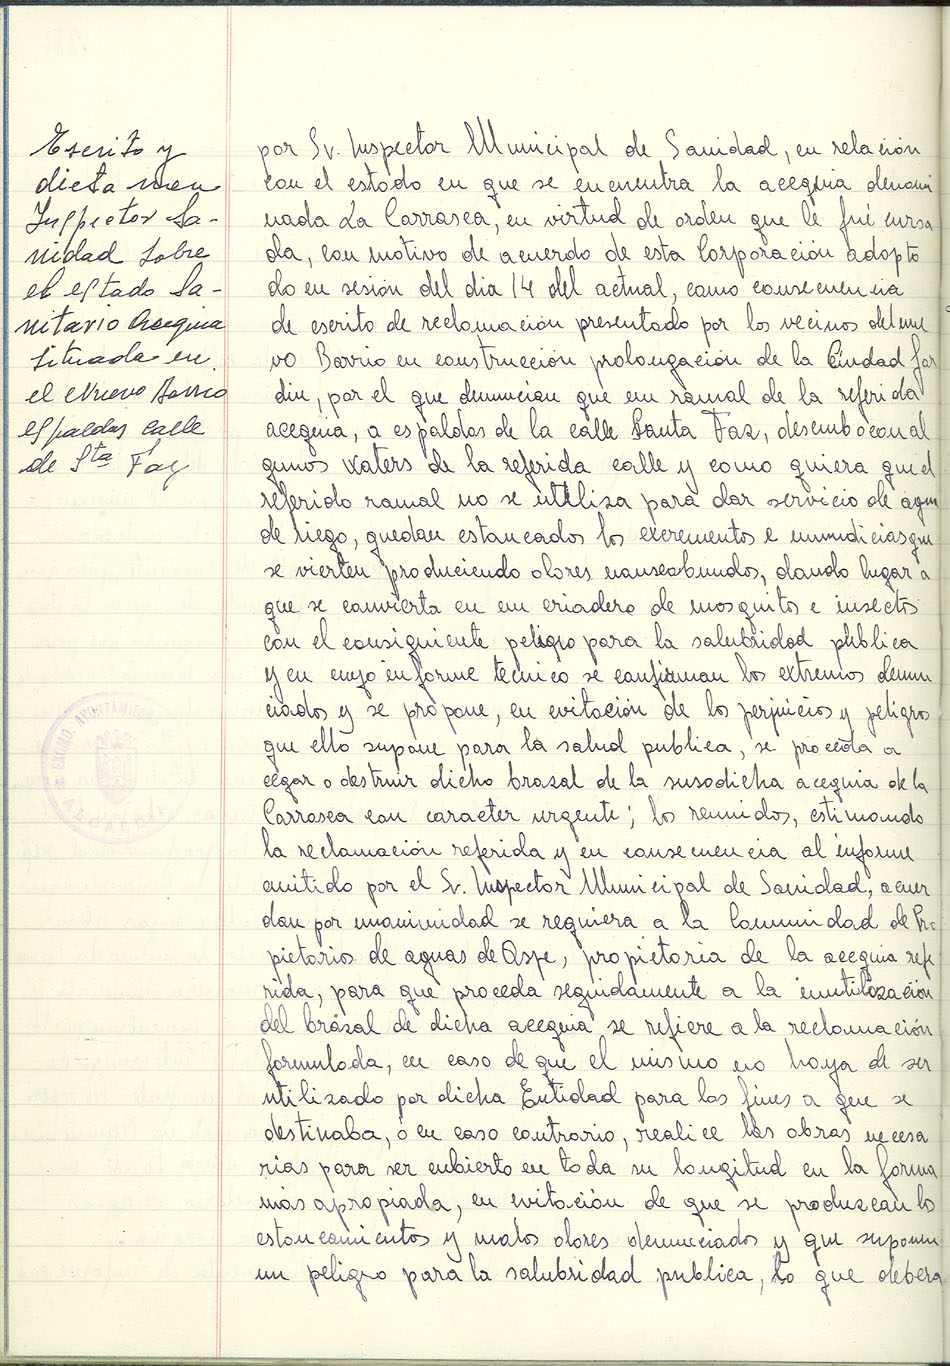 Escrito y
dictamen
Inspector Sa-
nidad sobre
el estado Sa-
nitario Acequia
situada en
el Nuevo Barrio
espaldas calle
de Sta Faz
por Sr. Inspector Municipal de Sanidad, en relación
con el estado en que se encuentra la acequia denomi
nada La Carrasca, en virtud de orden que le fué cursa
da, con motivo de acuerdo de esta Corporación adopta
do en sesión del dia 14 del actual, como consecuencia
de escrito de reclamación presentado por los vecinos del nue
vo Barrio en construcción prolongación de la Ciudad Jar
din, por el que denuncian que en un ramal de la referida
acequia, a espaldas de la calle Santa Faz, desembocan al
gunos waters de la referida calle y como quiera que el
referido ramal no se utiliza para dar servicio de agua
de riego, quedan estancados los excrementos e inmundicias que
se vierten produciendo olores nauseabundos, dando lugar a
que se convierta en un criadero de mosquitos e insectos
con el consiguiente peligro para la salubridad pública
y en cuyo informe tecnico se confirman los extremos denun
ciados y se propone, en evitación de los perjuicios y peligros
que ello supone para la salud publica, se proceda a
cegar o destruir dicho brazal de la susodicha acequia de la
Carrasca con caracter urgente; los reunidos, estimando
la reclamación referida y en consecuencia al informe
emitido por el Sr. Inspector Municipal de Sanidad, acuer
dan por unanimidad se requiera a la Comunidad de Pro
pietarios de aguas de Aspe, propietaria de la acequia refe
rida, para que proceda seguidamente a la inutilización
del brazal de dicha acequia se refiere a la reclamación
formulada, en caso de que el mismo no haya de ser
utilizado por dicha Entidad para los fines a que se
destinaba, o en caso contrario, realice las obras necesa
rias para ser cubierto en toda su longitud en la forma
más apropiada, en evitación de que se produzcan los
estancamientos y malos olores denunciados y que suponen
un peligro para la salubridad publica, lo que deberá
EXCMO. AYUNTAMIENTO
ALCALDIA